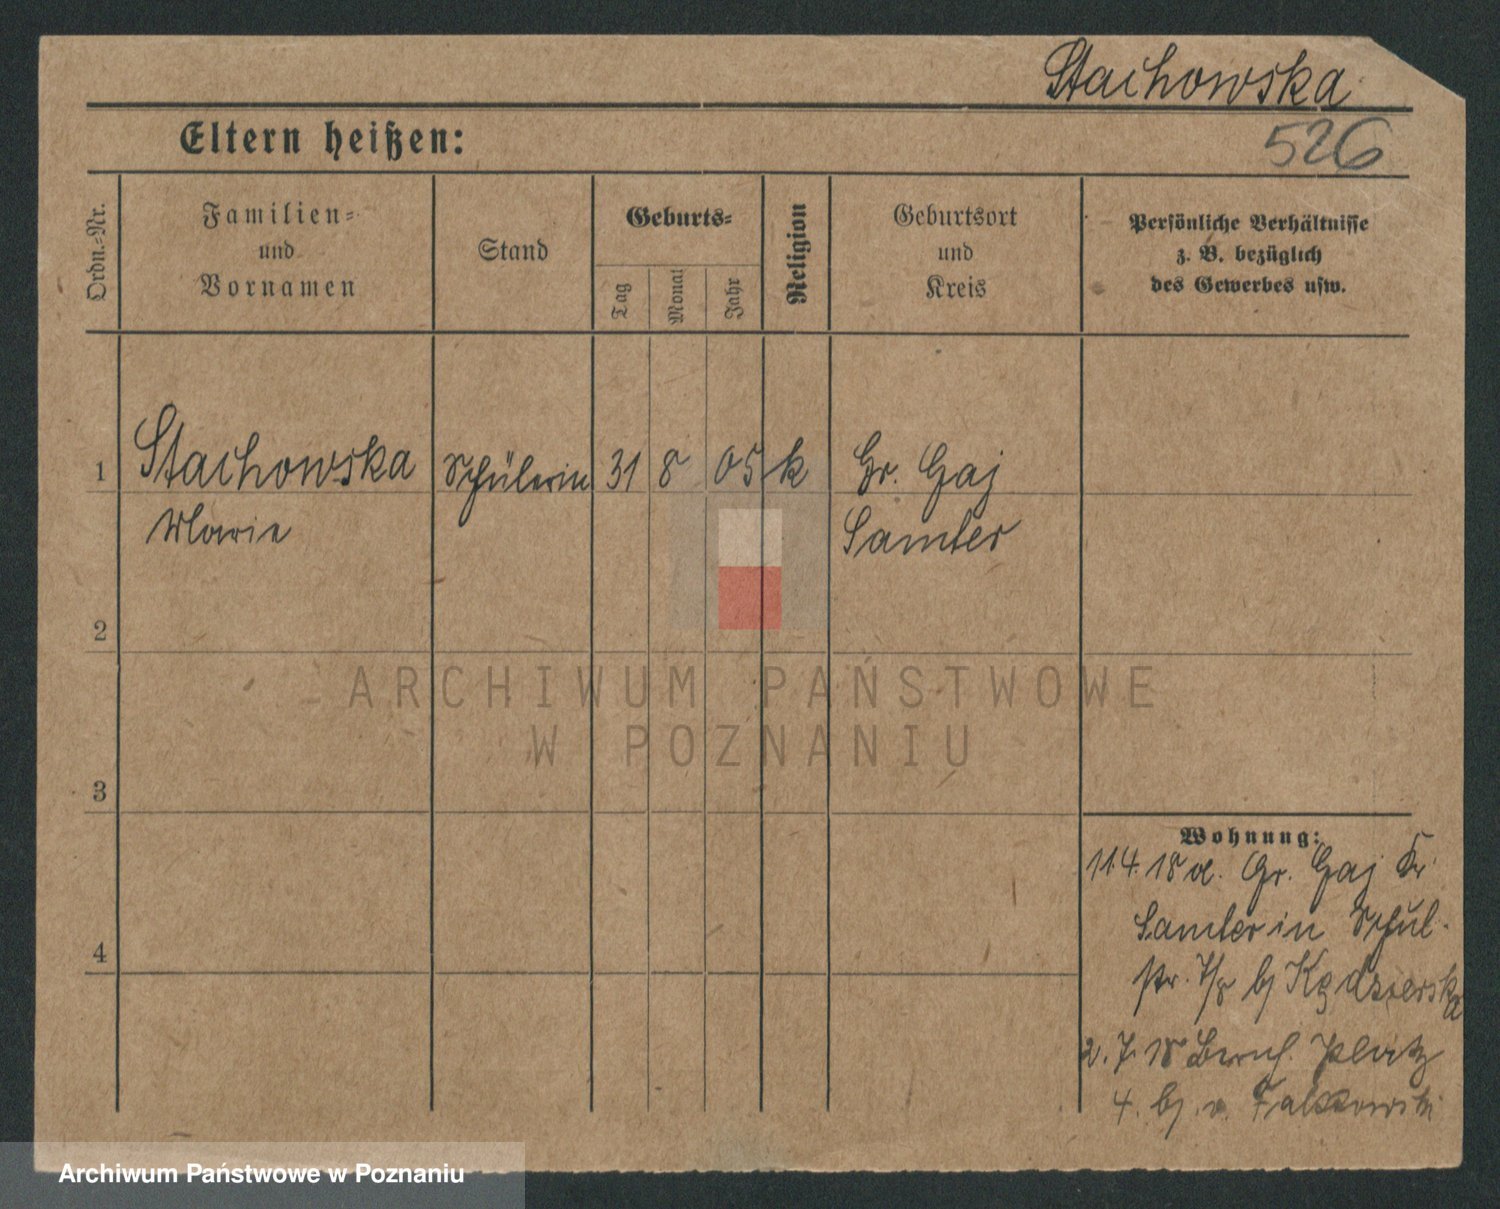 Stachowska
Eltern heißen:
526
Ordn.-Nr.
Familien-
und
Vornamen
Stand
Geburts-
Tag
Monat
Jahr
Religion
Geburtsort
und
Kreis
Persönliche Verhältnisse
z. B. bezüglich
des Gewerbes usw.
1 Stachowska Schülerin 31 8 05 k Gr. Gaj
Marie Samter
2
ARCHIWUM PAŃSTWOWE
W POZNANIU
3
Wohnung:
11.4.18 v. Gr. Gaj Kr.
Samter in Schul-
str. 7/8 bj Kędzierska
4
2. 7. 18 Bernh. Platz
4. bj. v.
Archiwum Państwowe w Poznaniu